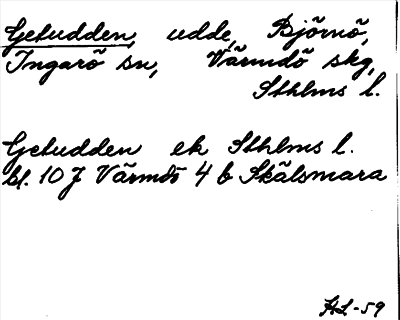 Getudden, udde, Björnö,
Ingarö sn, Värmdö skg,
Sthlms l.
Getudden ek Sthlms l.
bl. 10 J Värmdö 4 b Skälsmara
HL -59